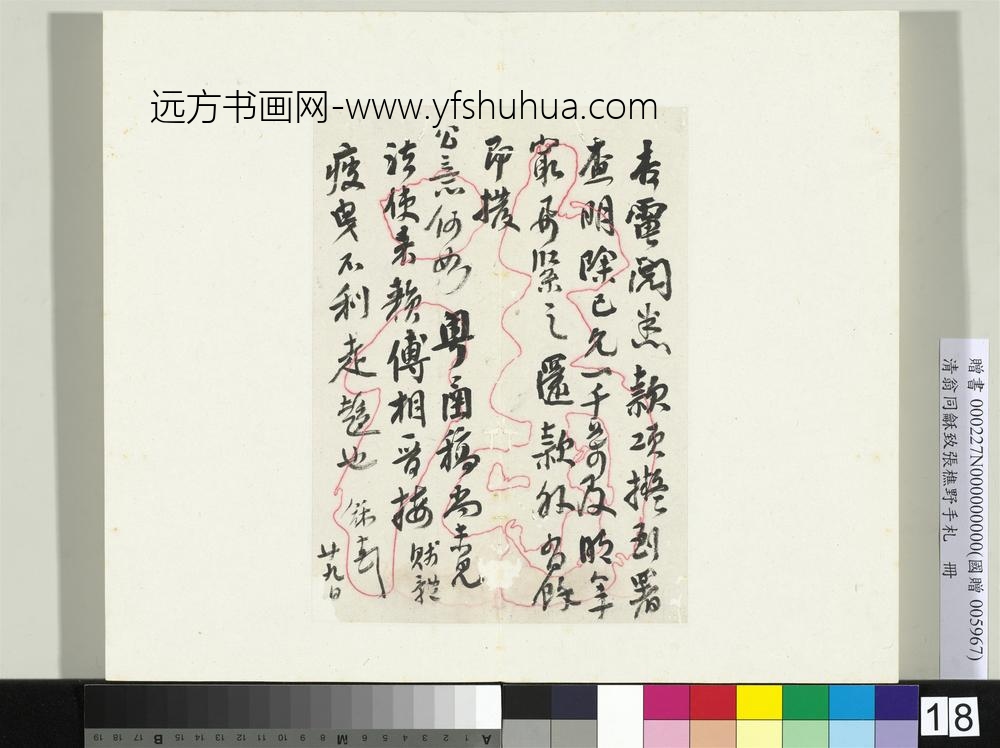 远方书画网-www.yfshuhua.com
杏電閱悉款項撥到署
查明除已允一千萬及明年
最要緊之還款外有餘
即撥
公意何如粵函稿尚未見
法使来賴傅相晋接
疲曳不利走趨也
廿九日
贈書 000227N000000000(國贈 005967)
清翁同龢致張樵野手札 冊
18
19 18 17 16 15 14 13 12 11 10 B 9 8 7 M 6 5 4 3 2 1 A